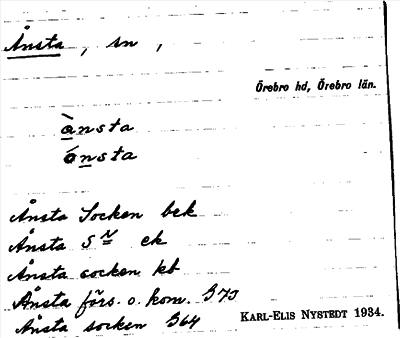 Ånsta, sn,
Örebro hd, Örebro län.
ànsta
ónsta
Ånsta Socken bek
Ånsta Sⁿ ek
Ånsta socken kb
Ånsta förs. o. kom. G73
Ånsta socken G64
KARL-ELIS NYSTEDT 1934.